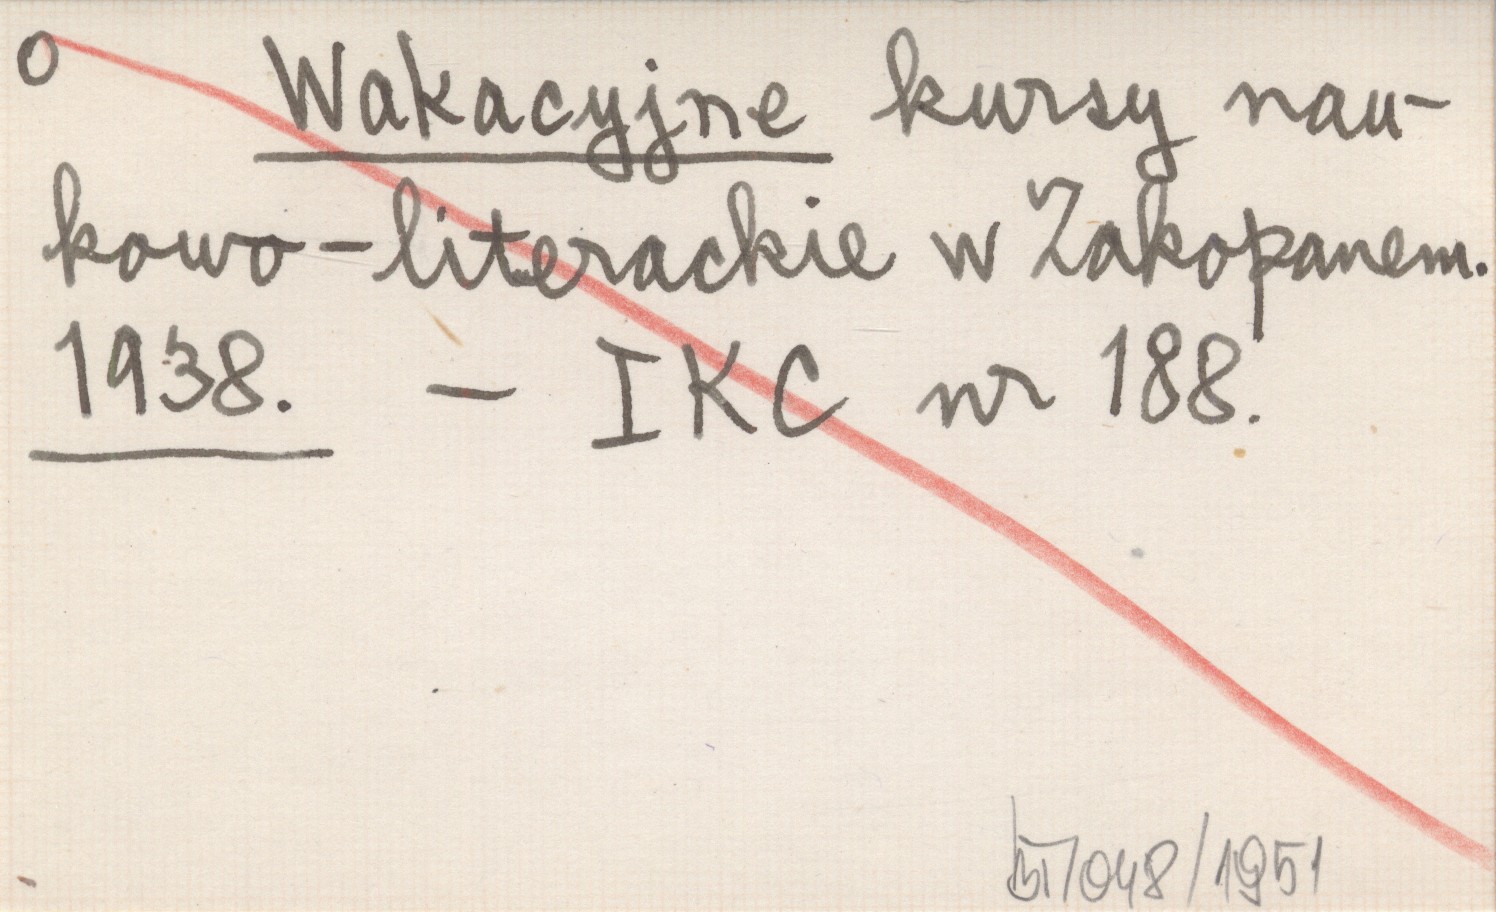 o Wakacyjne kursy nau-
kowo-literackie w Zakopanem.
1938. – IKC nr 188.
048/1951